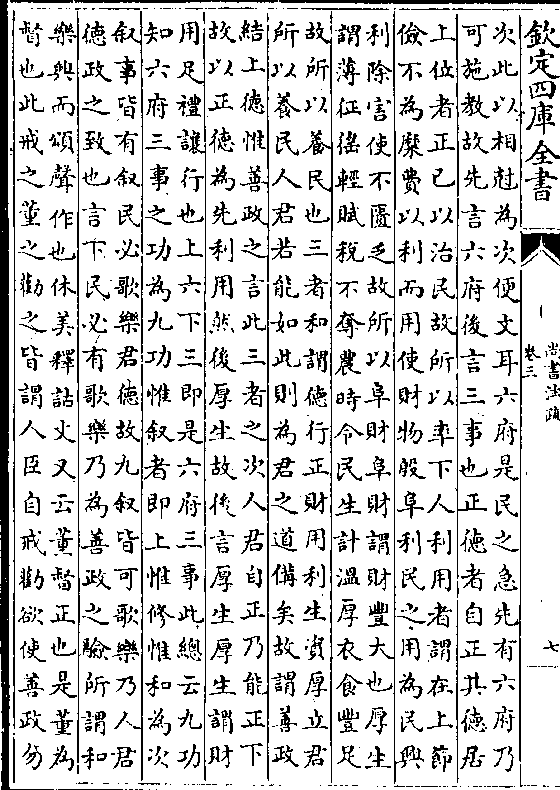 欽定四庫全書
尚書注疏
卷三
七
次此以相尅為次便文耳六府是民之急先有六府乃
可施教故先言六府後言三事也正德者自正其德居
上位者正已以治民故所以率下人利用者謂在上節
儉不為糜費以利而用使財物殷阜利民之用為民興
利除害使不匱乏故所以阜財阜財謂財豐大也厚生
謂薄征徭輕賦稅不奪農時令民生計溫厚衣食豐足
故所以養民也三者和謂德行正財用利生資厚立君
所以養民人君若能如此則為君之道備矣故謂善政
結上德惟善政之言此三者之次人君自正乃能正下
故以正德為先利用然後厚生故後言厚生厚生謂財
用足禮讓行也上六下三即是六府三事此總云九功
知六府三事之功為九功惟叙者即上惟修惟和為次
叙事皆有叙民必歌樂君德故九叙皆可歌樂乃人君
德政之致也言下民必有歌樂乃為善政之驗所謂和
樂興而頌聲作也休美釋詁文又云董督正也是董為
督也此戒之董之勸之皆謂人臣自戒勸欲使善政勿